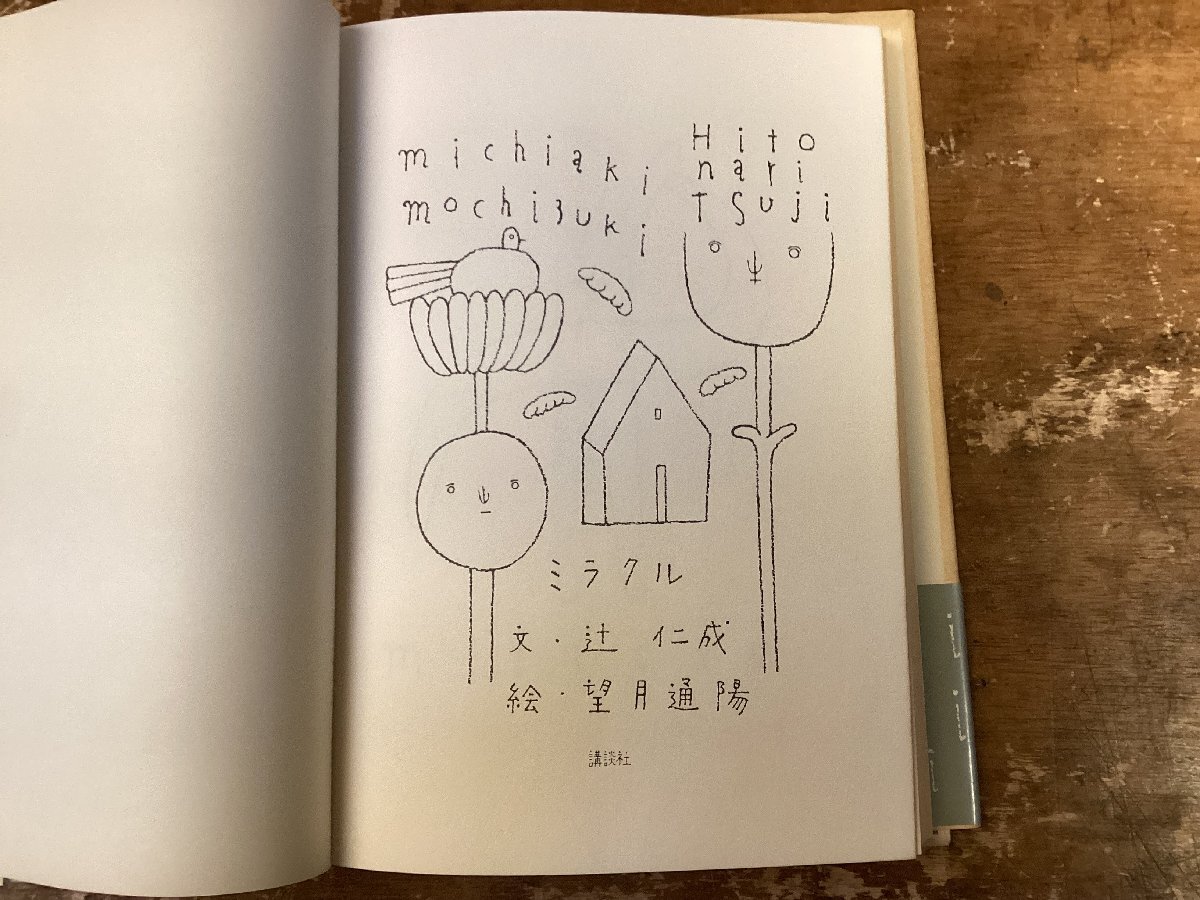 michiaki
mochizuki
Hito
nari
Tsuji
ミラクル
文・辻 仁成
絵・望月通陽
講談社